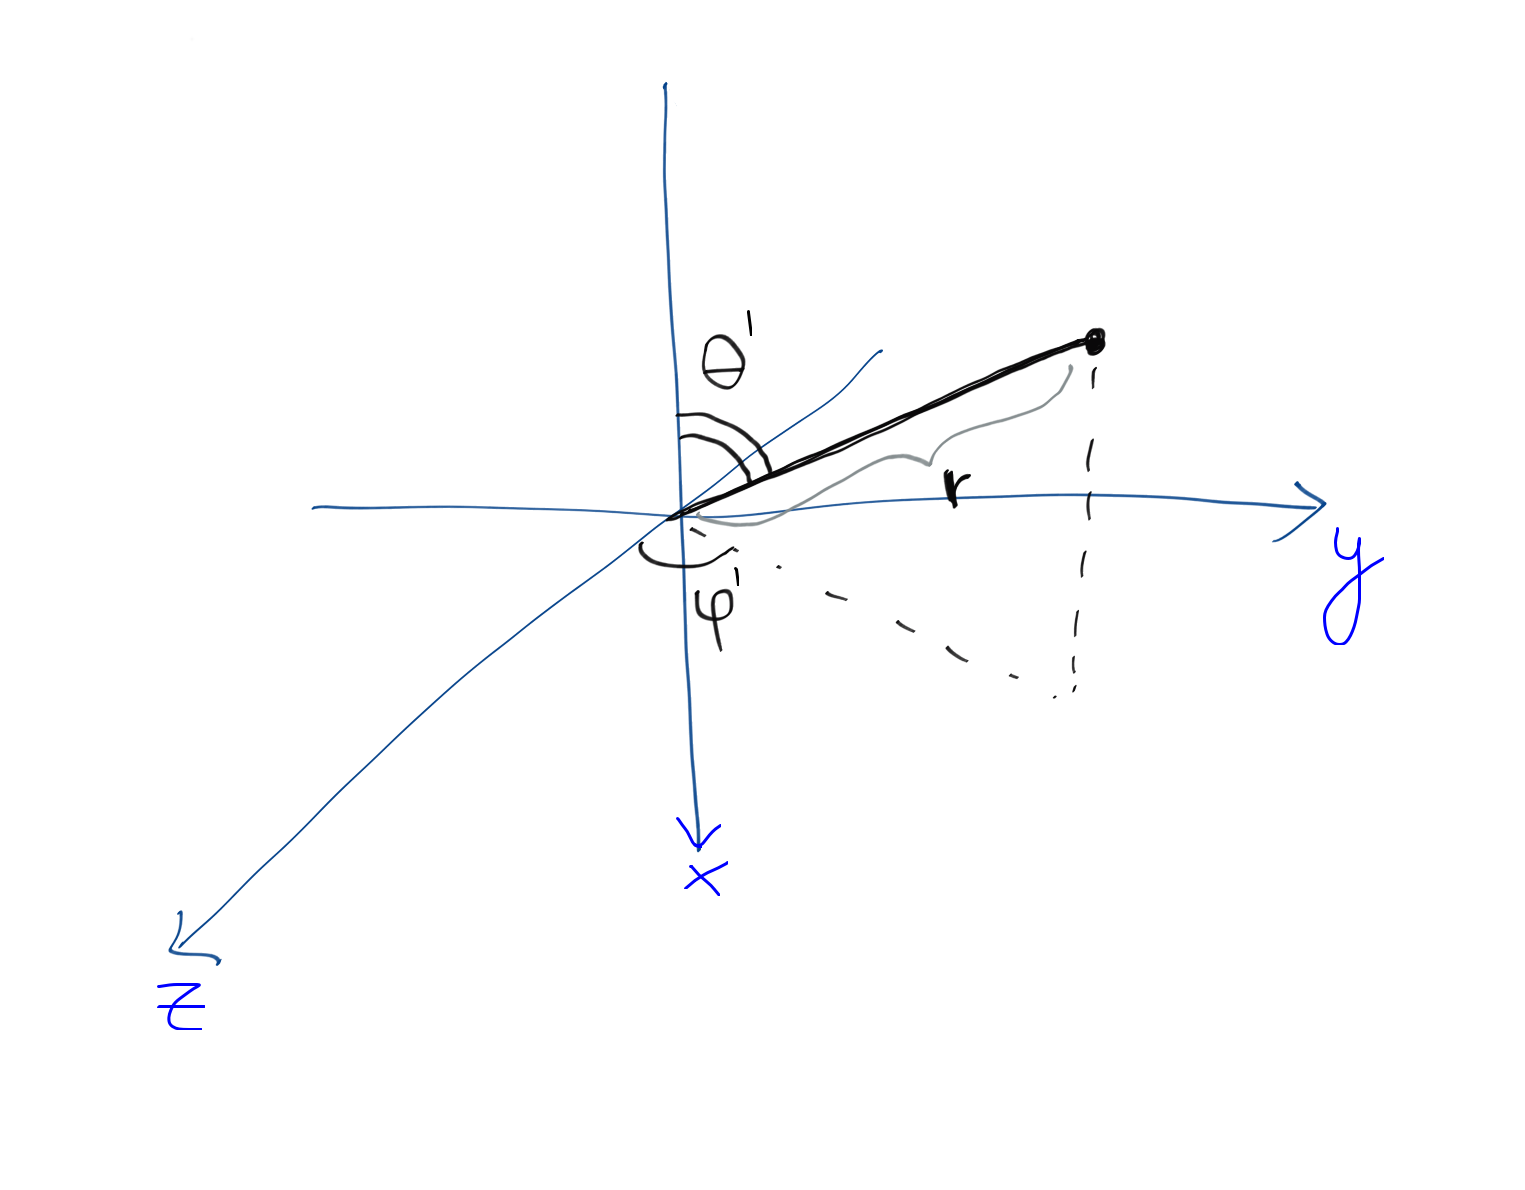 θ'
r
y
φ'
x
z